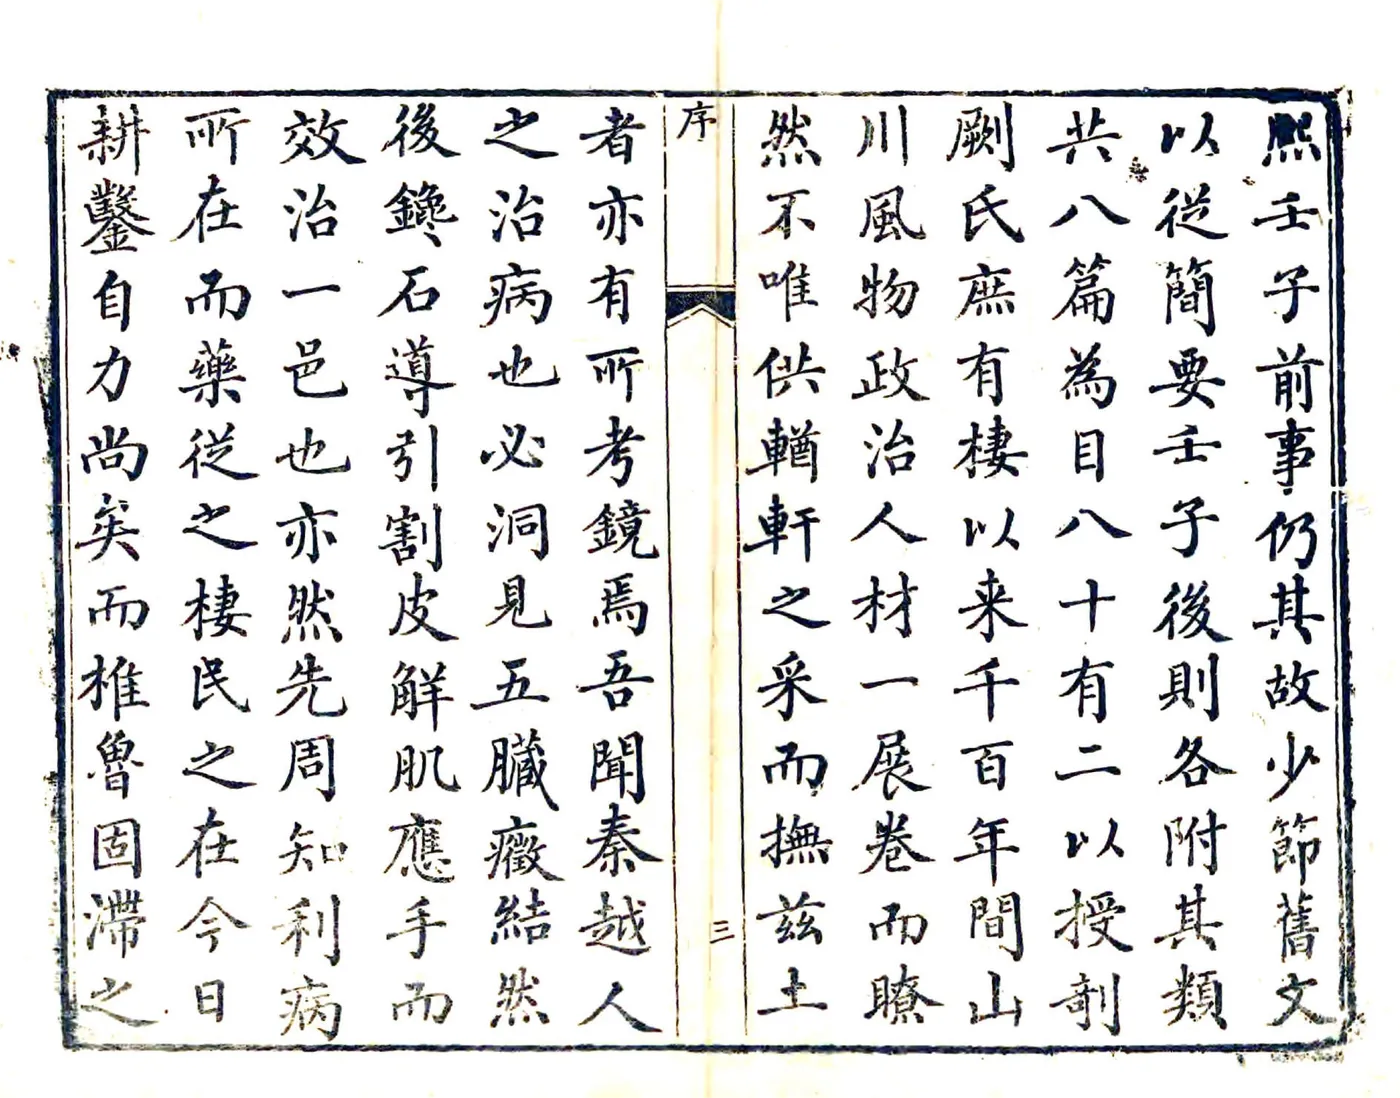 熙壬子前事仍其故少節舊文
以從簡要壬子後則各附其類
共八篇為目八十有二以授剞
劂氏庶有棲以来千百年間山
川風物政治人材一展卷而瞭
然不唯供輶軒之采而撫茲土
序
三
者亦有所考鏡焉吾聞秦越人
之治病也必洞見五臟癥結然
後鑱石導引割皮解肌應手而
效治一邑也亦然先周知利病
所在而藥從之棲民之在今日
耕鑿自力尚矣而椎魯固滯之